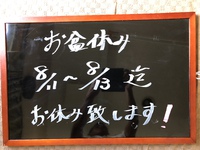 お盆休み
8/11〜8/13迄
お休み致します!